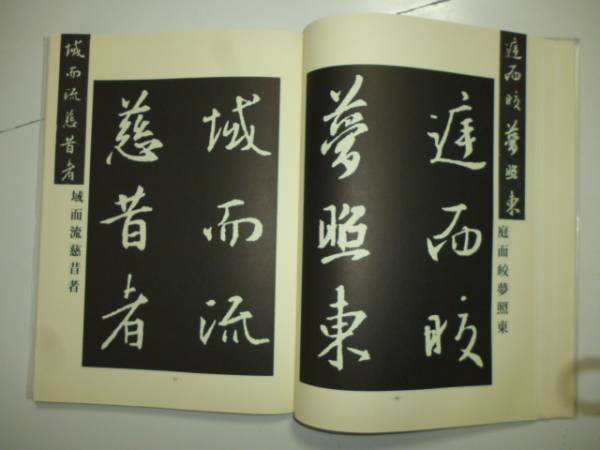 庭而皎夢照東
庭而皎夢照東
庭而皎
夢照東
域而流
慈昔者
域而流慈昔者
域而流慈昔者